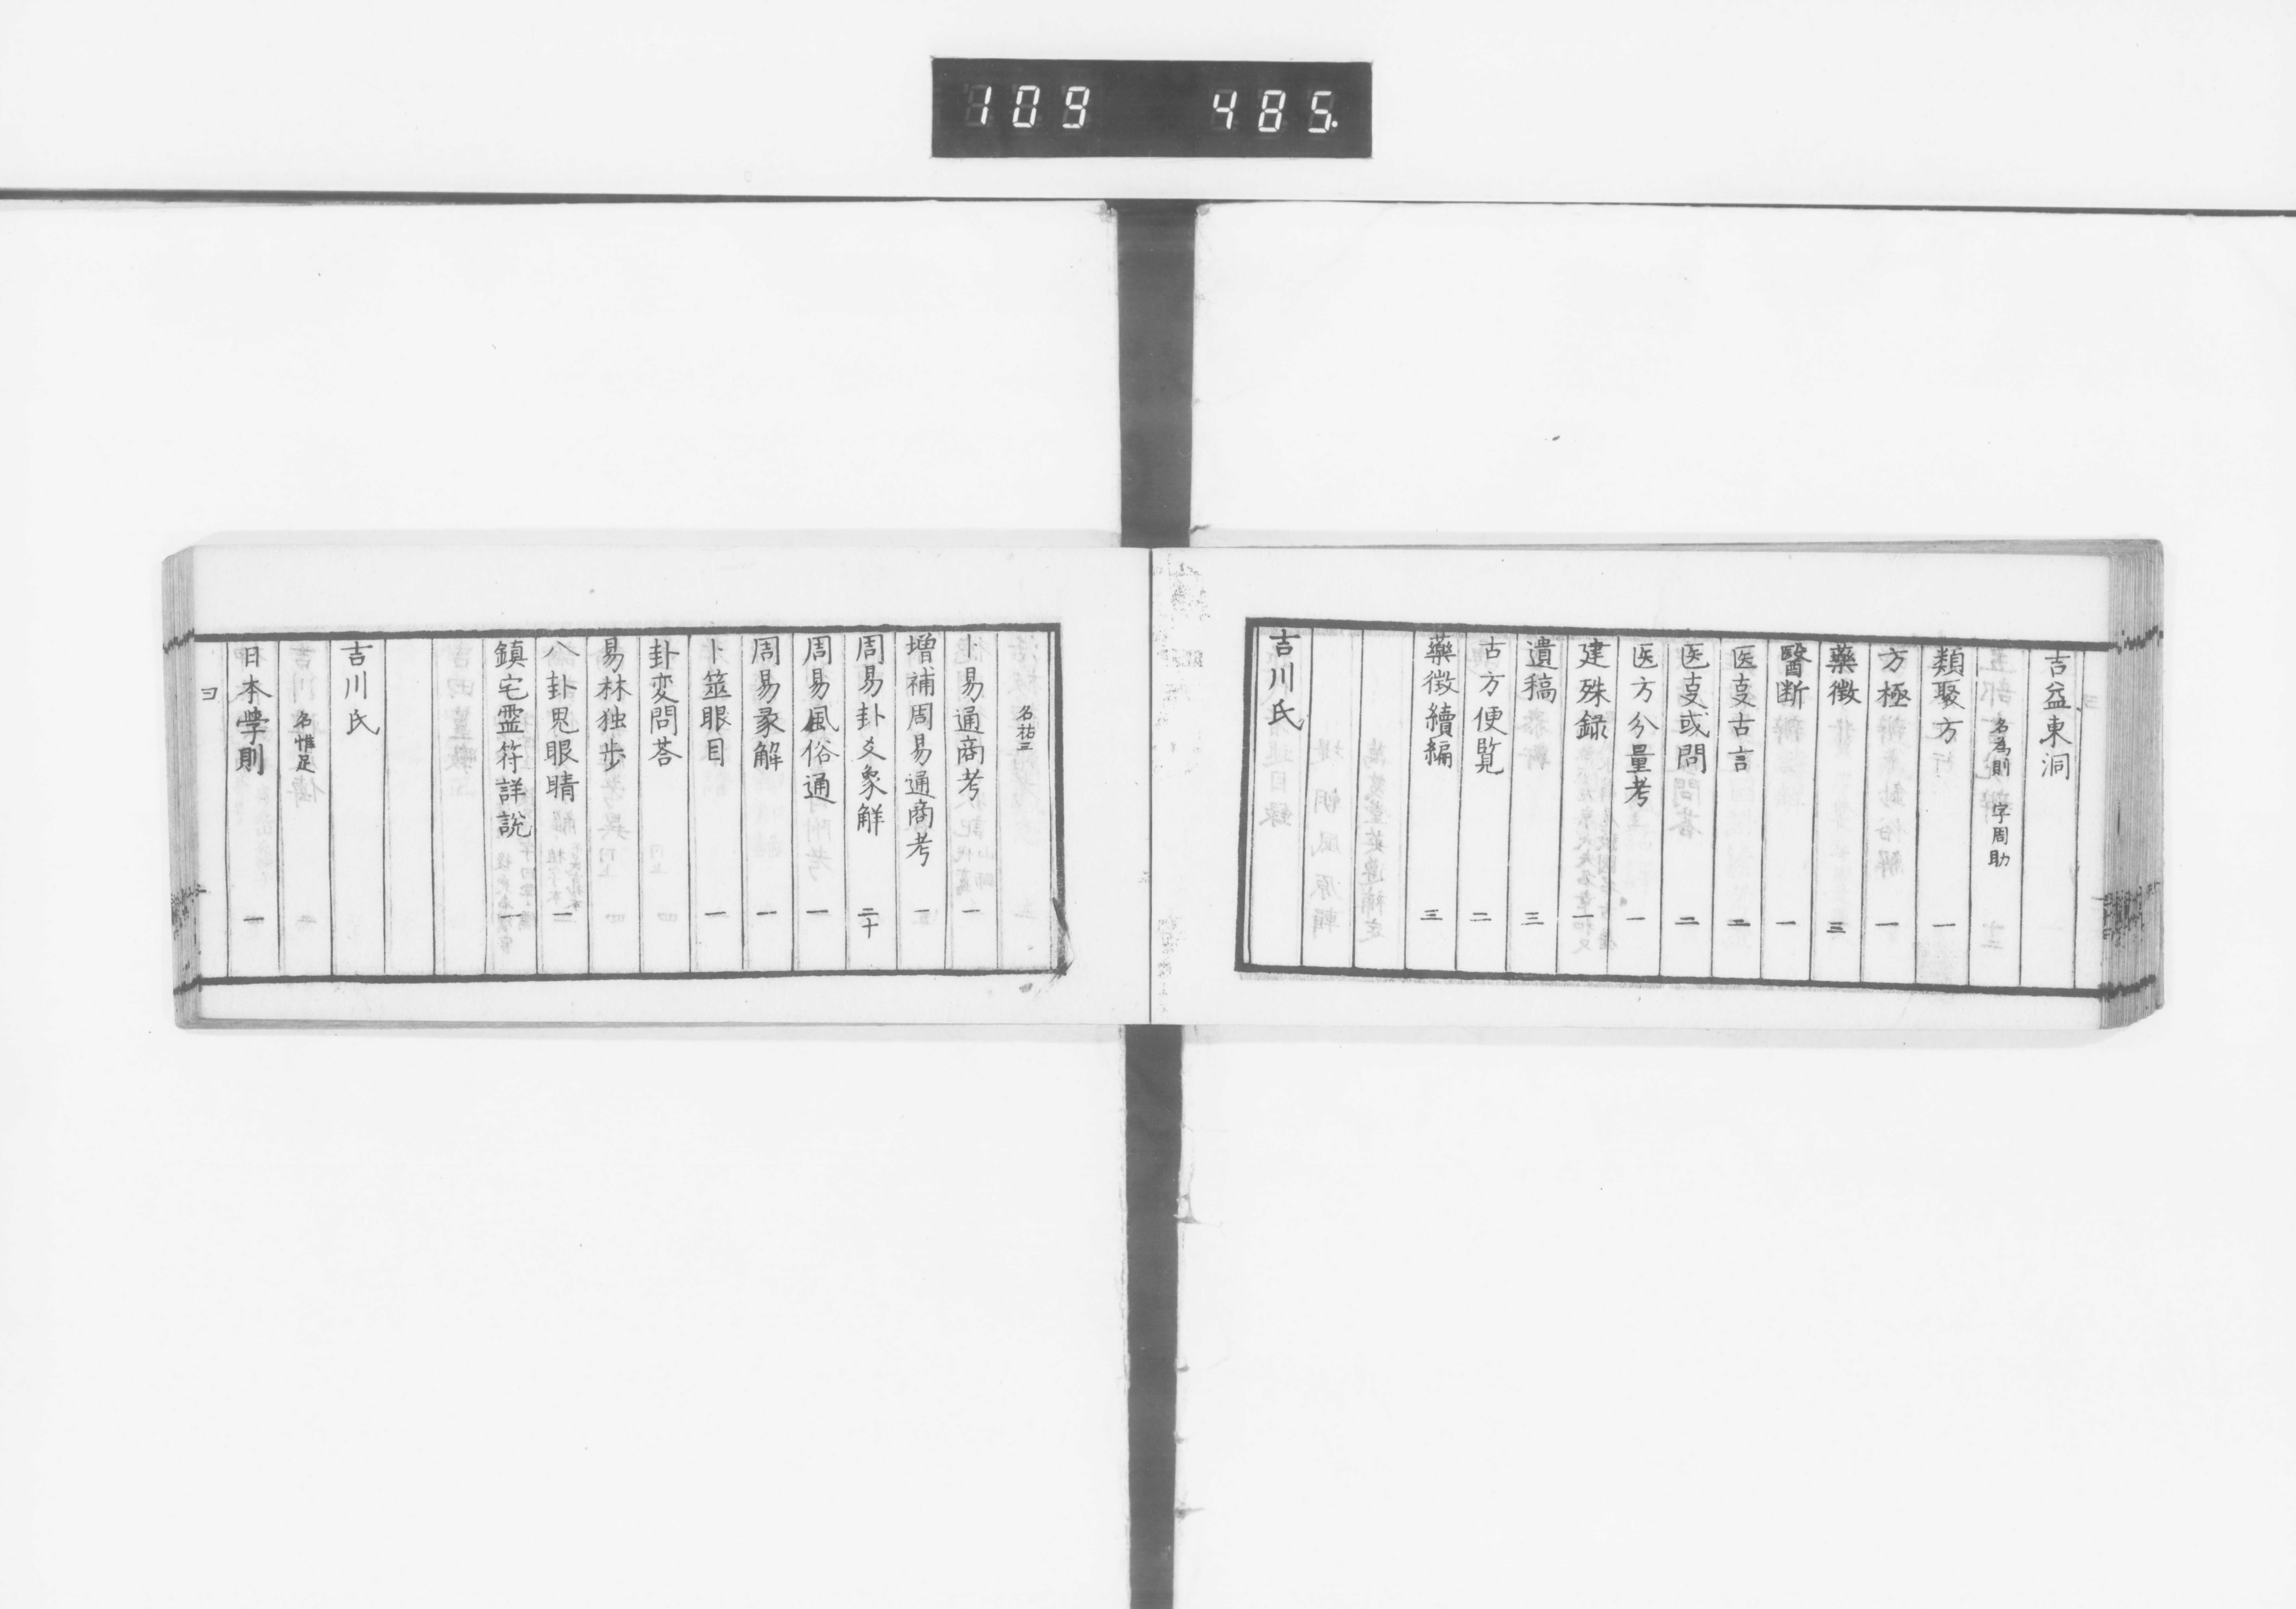 109 485
吉益東洞
名為則 字周助
類聚方 一
方極 一
藥徴 三
醫断 一
医叓古言 二
医叓或問 二
医方分量考 一
建殊録 一
遺稿 三
古方便覧 二
藥徴續編 三
吉川氏
名祐三
卜易通商考 一
増補周易通商考 一
周易卦爻象解 二十
周易風俗通 一
周易彖解 一
卜筮眼目 一
卦変問荅
易林独歩
八卦鬼眼睛 一
鎮宅霊符詳説 一
吉川氏
名惟足
日本學則 一
ヨ